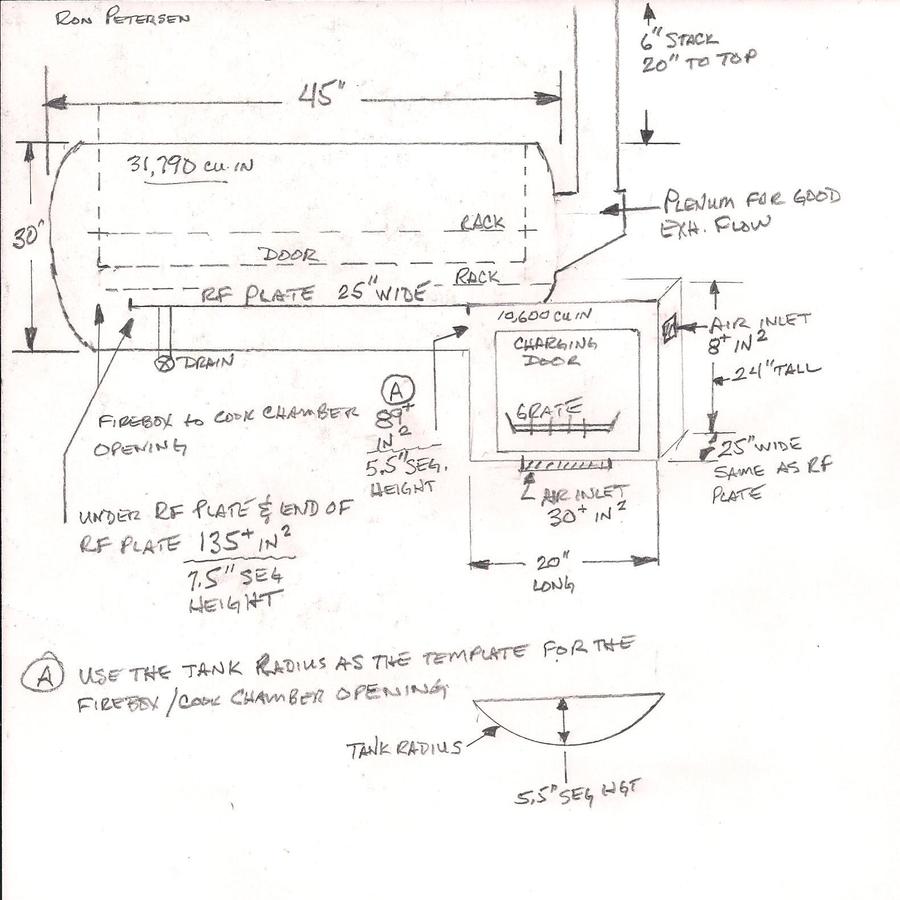 RON PETERSEN
6" STACK
20" TO TOP
45"
31,790 CU.IN
PLENUM FOR GOOD
EXH. FLOW
30"
RACK
DOOR
RACK
RF PLATE 25" WIDE
10,600 CU IN
CHARGING
DOOR
AIR INLET
8+ IN2
24" TALL
DRAIN
A
89+
IN2
5.5" SEG.
HEIGHT
GRATE
FIREBOX to COOK CHAMBER
OPENING
25" WIDE
SAME AS RF
PLATE
AIR INLET
30+ IN2
UNDER RF PLATE & END OF
RF PLATE 135+ IN2
7.5" SEG
HEIGHT
20"
LONG
A USE THE TANK RADIUS AS THE TEMPLATE FOR THE
FIREBOX/COOK CHAMBER OPENING
TANK RADIUS
5.5" SEG HGT